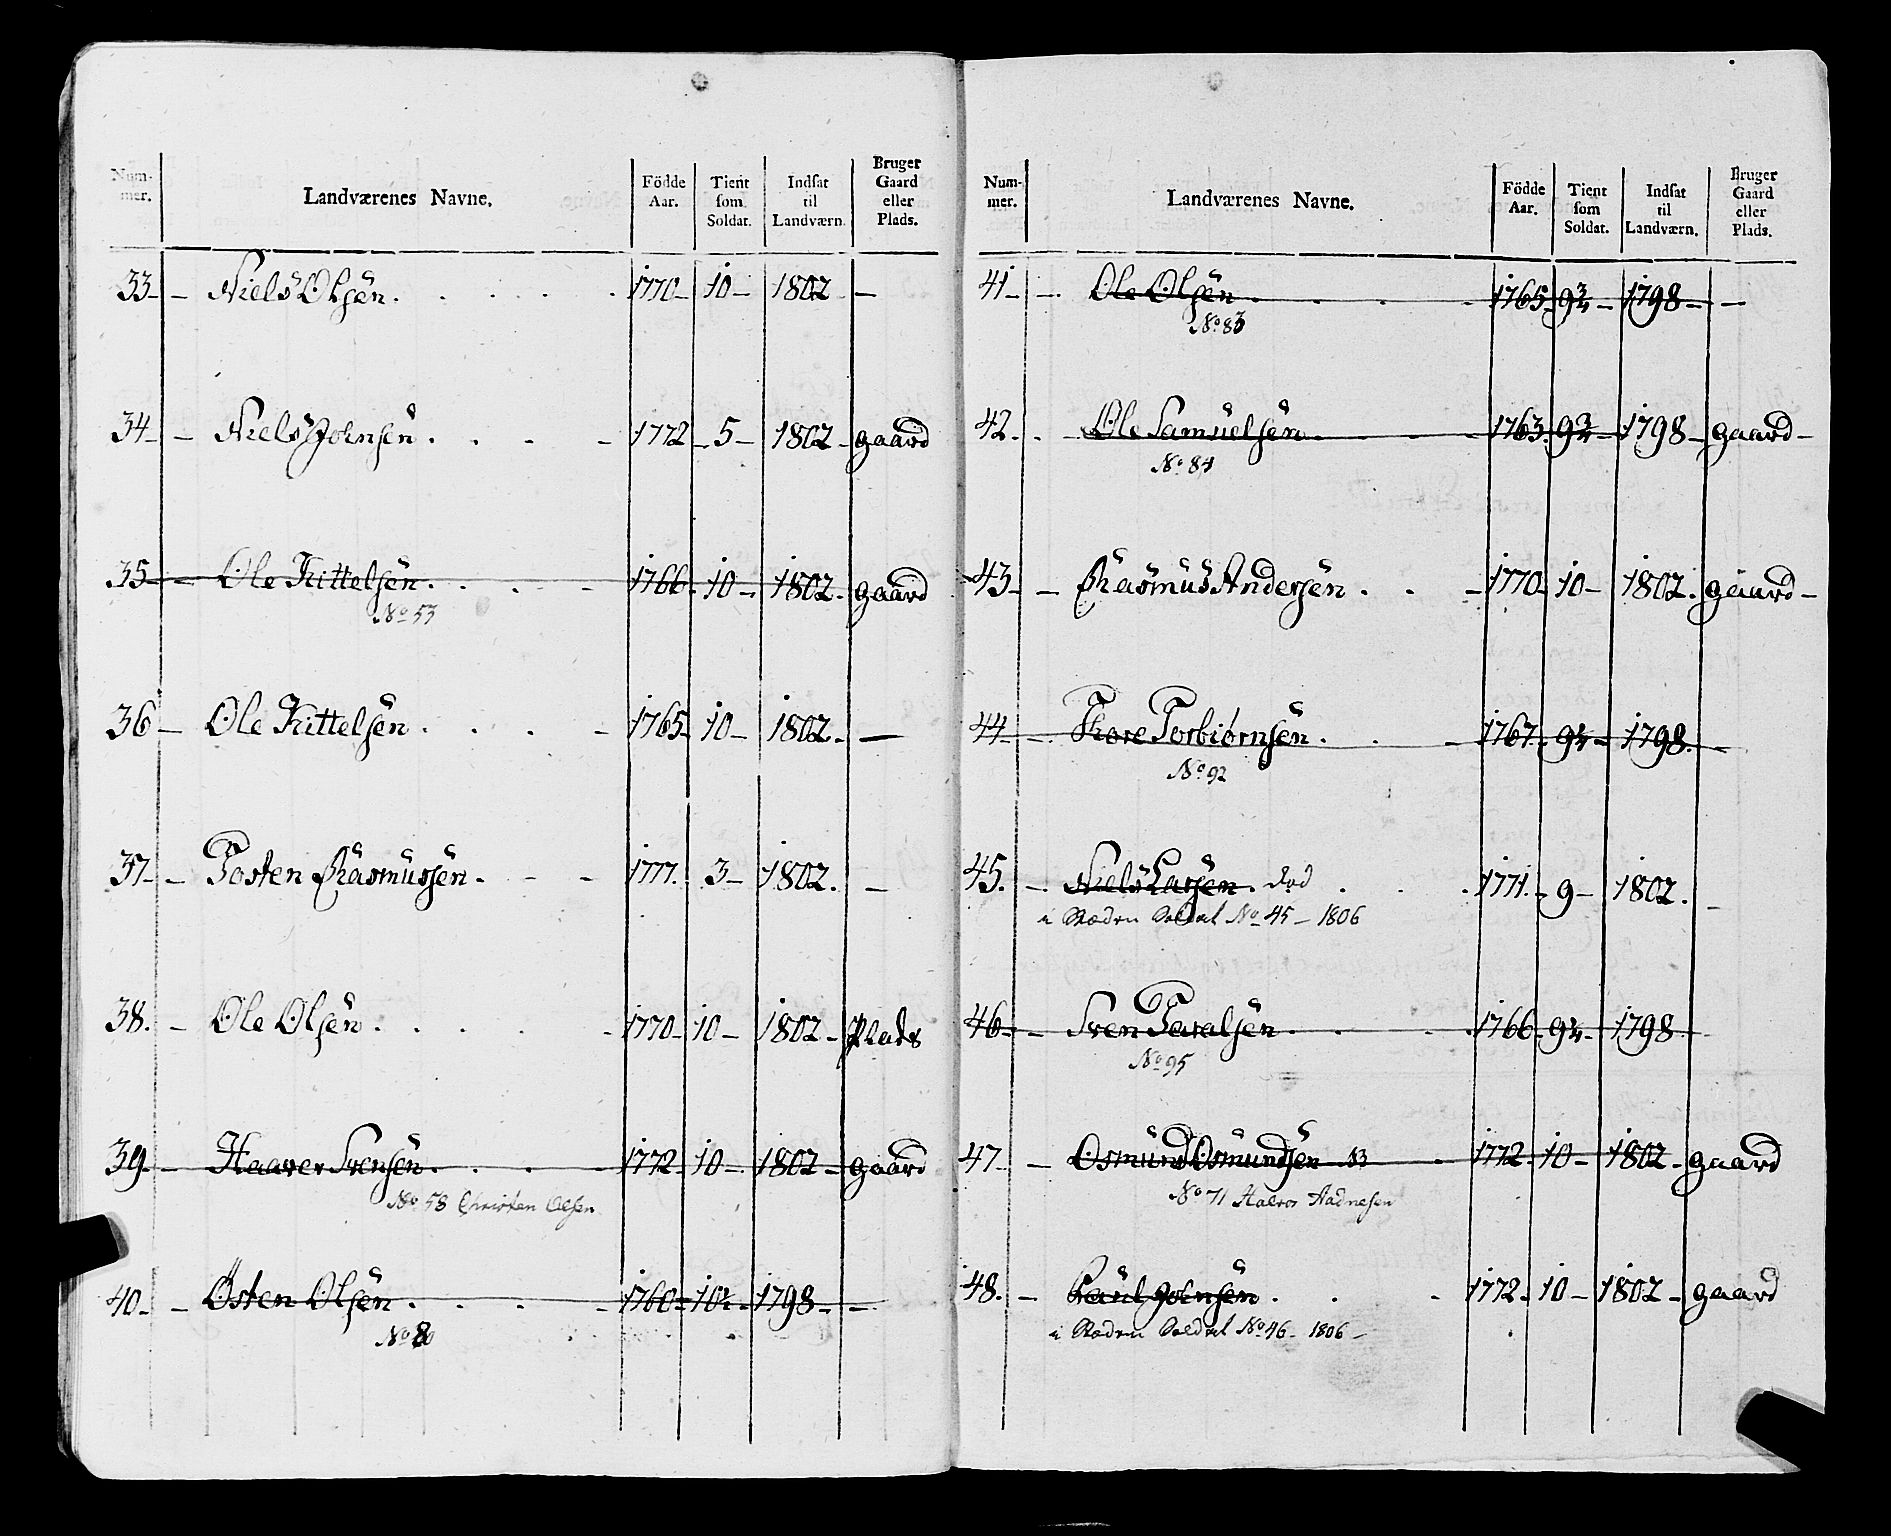 Num-mer. Landværenes Navne. Födde Aar. Tient som Soldat. Indsat til Landværn. Bruger Gaard eller Plads.
33 - Niels Olsen. 1770 - 10 - 1802 -
34 - Niels Johnsen. 1772 - 5 - 1802 - gaard
35 - Ole Kittelsen. 1766 - 10 - 1802 - gaard
No 53
36 - Ole Kittelsen. 1765 - 10 - 1802 -
37 - Tosten Rasmussen. 1777. 3 - 1802. -
38. - Ole Olsen. 1770 - 10 - 1802 - Plads
39. - Haaver Svensen. 1772 - 10 - 1802 - gaard
No 58 Christen Olsen
40 - Østen Olsen. 1760 - 10½ - 1798 -
No
Num-mer. Landværenes Navne. Födde Aar. Tient som Soldat. Indsat til Landværn. Bruger Gaard eller Plads.
41 - Ole Olsen. 1765 - 9¾ - 1798 -
No 83
42. - Ole Samuelsen. 1763. 9¾ - 1798 - gaard -
No 84
43 - Rasmus Andersen. 1770 - 10 - 1802. gaard -
44 - Thore Torbiørnsen. 1767. - 9¾ - 1798. -
No 92
45. - Niels Larsen. død 1771. - 9 - 1802. -
i Stæden Soldat No 45 - 1806
46 - Sven Tavalsen. 1766 - 9¾ - 1798 -
No 95
47 - Osmund Osmundsen 53 1772 - 10 - 1802 - gaard
No 71 Halvor Aadnesen
48. - Paul Johnsen. 1772 - 10 - 1802 - gaard
i Stæden Soldat No 46 - 1806 -